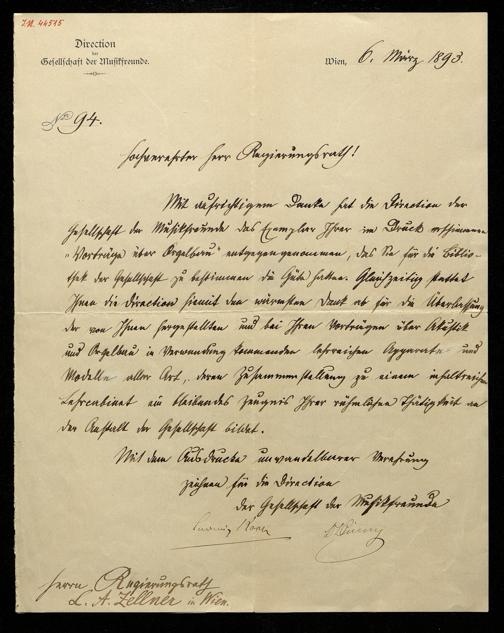 I.N. 44515
Direction
der
Gesellschaft der Musikfreunde.
Wien, 6. März 1893.
No 94.
Hochverehrter Herr Regierungsrath!
Mit aufrichtigem Danke hat die Direction der
Gesellschaft der Musikfreunde das Exemplar Ihrer im Druck erschienenen
„Vorträge über Orgelbau" entgegengenommen, das Sie für die Biblio-
thek der Gesellschaft zu bestimmen die Güte hatten. Gleichzeitig stattet
Ihnen die Direction hiemit den wärmsten Dank ab für die Überlassung
der von Ihnen hergestellten und bei Ihren Vorträgen über Akustik
und Orgelbau in Verwendung kommenden lehrreichen Apparate und
Modelle aller Art, deren Zusammenstellung zu einem inhaltreichen
Lehrcabinet ein bleibendes Zeugnis Ihrer rühmlichen Thätigkeit an
der Anstalt der Gesellschaft bildet.
Mit dem Ausdrucke unwandelbarer Verehrung
zeichnen für die Direction
der Gesellschaft der Musikfreunde
Herrn Regierungsrath
L. A. Zellner in Wien.